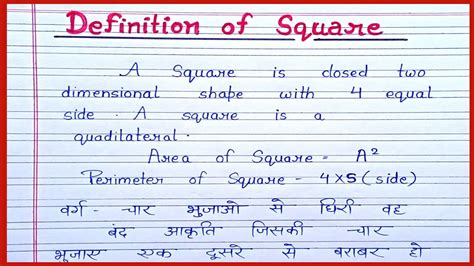 Definition of Square
A Square is closed two
dimensional shape with 4 equal
side . A square is a
quadilateral .
Area of Square = A²
Perimeter of Square - 4×5 (side)
वर्ग - चार भुजाओ से घिरी वह
बंद आकृति जिसकी चार
भुजाए एक दूसरे से बराबर हो